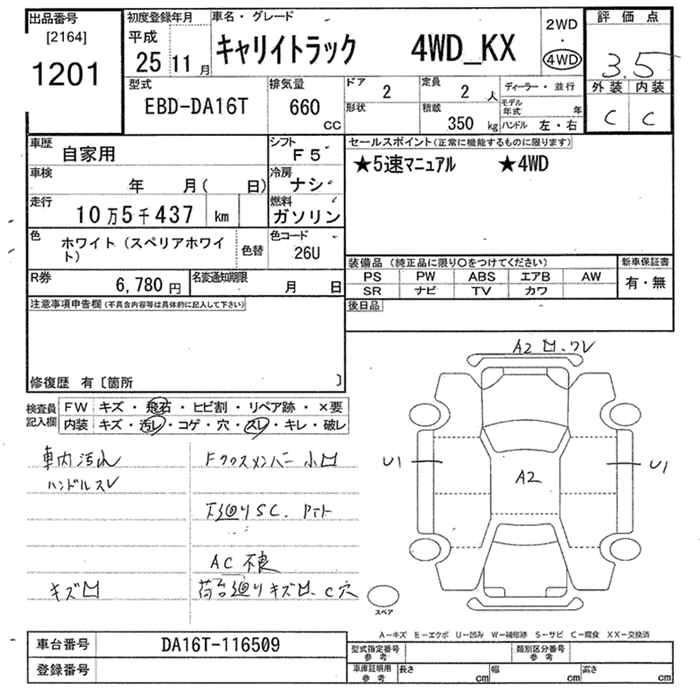 出品番号
[2164]
1201
初度登録年月
平成
25 11月
車名・グレード
キャリイトラック 4WD_KX
2WD
・
4WD
評価点
3.5
外装 内装
C C
型式
EBD-DA16T
排気量
660 cc
ドア
2
形状
定員
2人
積載
350 kg
ディーラー・並行
モデル年式 年
ハンドル 左・右
車歴
自家用
シフト
F5
車検
年 月( 日)
冷房
ナシ
走行
10万5千437 km
燃料
ガソリン
色
ホワイト(スペリアホワイト)
色替
色コード
26U
R券
6,780円
名変通知期限
月 日
セールスポイント(正常に機能するものに限ります)
★5速マニュアル ★4WD
装備品(純正品に限り○をつけてください)
PS PW ABS エアB AW
SR ナビ TV カワ
新車保証書
有・無
後日品
注意事項申告欄(不具合内容等は具体的に記入して下さい)
修復歴 有〔箇所 〕
検査員記入欄
FW キズ・飛石・ヒビ割・リペア跡・×要
内装 キズ・汚レ・コゲ・穴・スレ・キレ・破レ
車内汚れ
ハンドルスレ
キズ凹
Fクロスメンバー小凹
下廻りSC.
AC不良
荷台廻りキズ凹.C穴
A2凹.ワレ
U1
A2
U1
スペア
A-キズ E-エクボ U-凹み W-補修跡 S-サビ C-腐食 XX-交換済
車台番号
DA16T-116509
登録番号
型式指定番号
参考
類別区分番号
参考
車庫証明用
参考
長さ cm
幅 cm
高さ cm